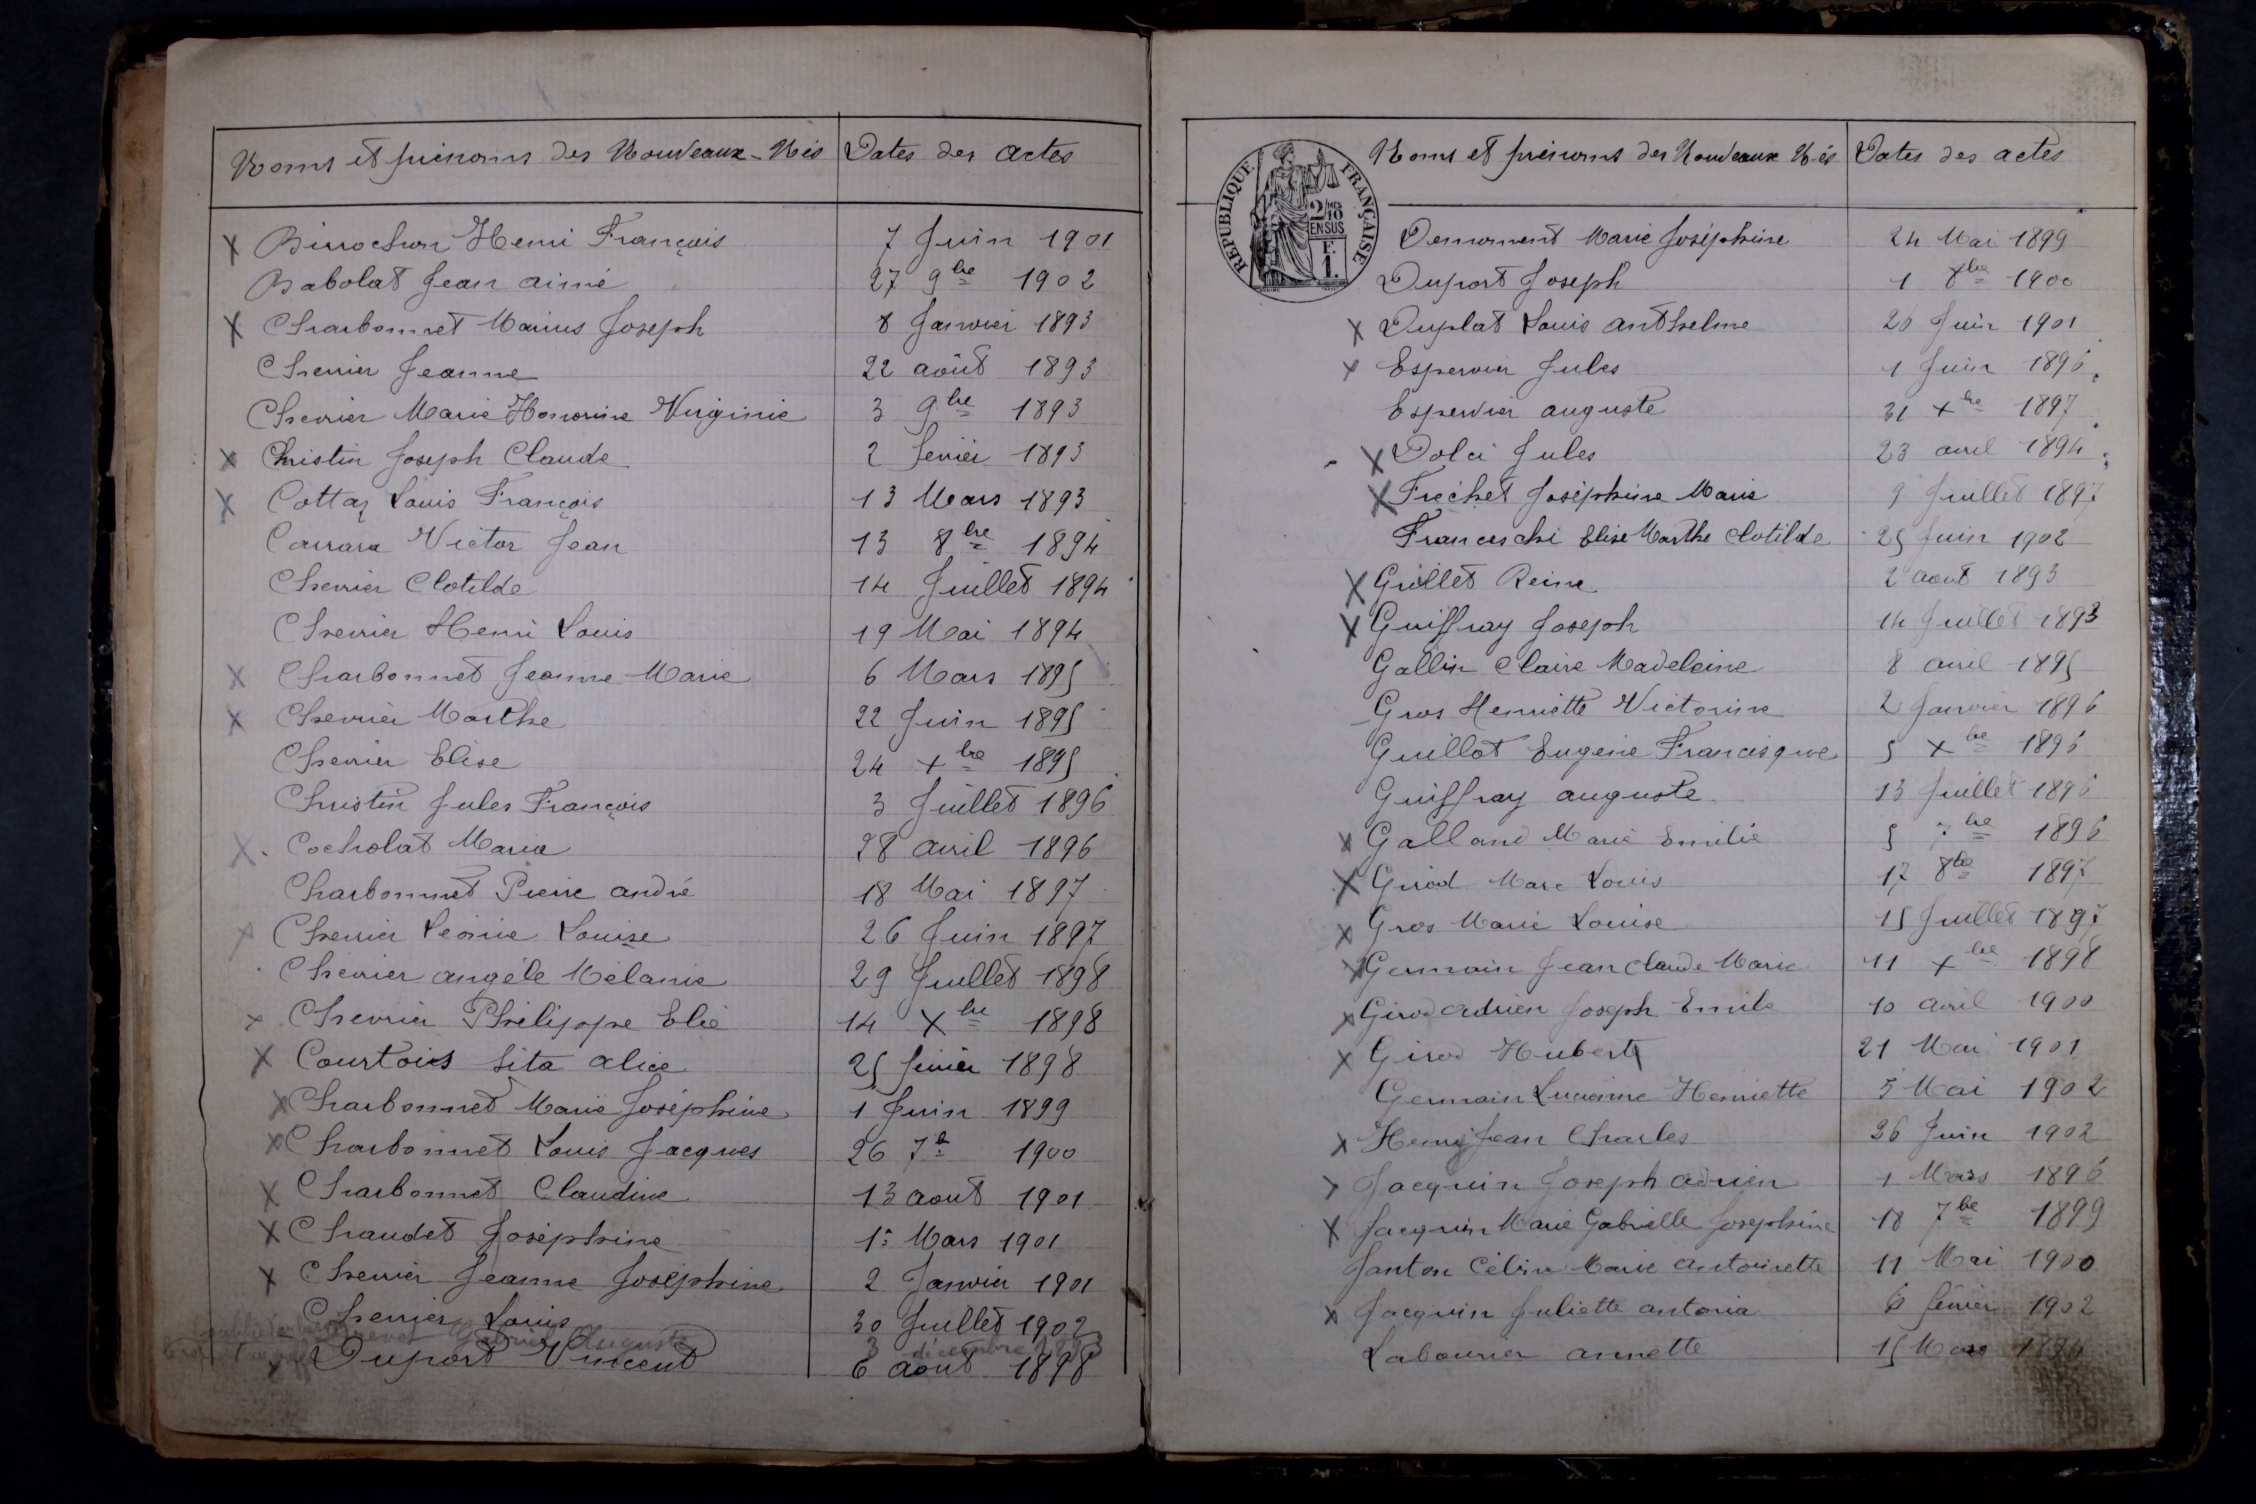 Noms et prénoms des Nouveaux-Nés Dates des actes
X Birrochon Henri François 7 Juin 1901
Babolat Jean aimé 27 9bre 1902
X Charbonnet Marius Joseph 8 Janvier 1893
Chevrier Jeanne 22 août 1893
Chevrier Marie Honorine Virginie 3 9bre 1893
X Christin Joseph Claude 2 février 1893
X Cottaz Louis François 13 Mars 1893
Carrara Victor Jean 13 8bre 1894
Chevrier Clotilde 14 Juillet 1894
Chevrier Henri Louis 19 Mai 1894
X Charbonnet Jeanne Marie 6 Mars 1895
X Chevrier Marthe 22 Juin 1895
Chevrier Elise 24 Xbre 1895
Christin Jules François 3 Juillet 1896
X Cocholat Maria 28 avril 1896
Charbonnet Pierre andré 18 Mai 1897
X Chevrier Léonie Louise 26 Juin 1897
Chevrier angèle Mélanie 29 Juillet 1898
X Chevrier Philippe Elie 14 Xbre 1898
X Courtois Sita alice 25 février 1898
X Charbonnet Marie Joséphine 1 Juin 1899
X Charbonnet Louis Jacques 26 7b 1900
X Charbonnet Claudine 13 aout 1901
X Chaudet Joséphine 1r Mars 1901
X Chevrier Jeanne Joséphine 2 Janvier 1901
Chevrier Louis 30 Juillet 1902
Gabriel Auguste 3 décembre 1893
X Duport Vincent 6 août 1898
Noms et prénoms des Nouveaux Nés Dates des actes
RÉPUBLIQUE FRANÇAISE
2/10
EN SUS
F.
1.
Demornent Marie Joséphine 24 Mai 1899
Duport Joseph 1 8bre 1900
X Duplat Louis anthelme 20 Juin 1901
X Espervier Jules 1 Juin 1896
Espervier auguste 31 Xbre 1897
X Dolci Jules 23 avril 1894
X Frechet Joséphine Marie 9 Juillet 1897
Franceschi Elise Marthe Clotilde 25 Juin 1902
X Grillet Reine 2 aout 1893
X Guiffray Joseph 14 Juillet 1893
Gallin Claire Madeleine 8 avril 1895
Gros Henriette Victorine 2 Janvier 1896
Guillot Eugénie Francisque 5 Xbre 1896
Guiffray auguste 13 Juillet 1896
X Galland Marie Emilie 5 7bre 1896
X Girod Marc Louis 17 8bre 1897
X Gros Marie Louise 15 Juillet 1897
X Germain Jean Claude Marie 11 Xbre 1898
X Girod Adrien Joseph Emile 10 avril 1900
X Girod Hubert 21 Mai 1901
Germain Lucienne Henriette 5 Mai 1902
X Henry Jean Charles 26 Juin 1902
X Jacquin Joseph adrien 1 Mars 1896
X Jacquin Marie Gabrielle Joséphine 18 7bre 1899
Janton Célina Marie Antoinette 11 Mai 1900
X Jacquin Juliette antonia 6 février 1902
Labourier annette 15 Mars 1894